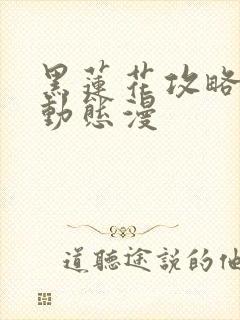 黑蓮花攻略
動態漫
道聽途說的他